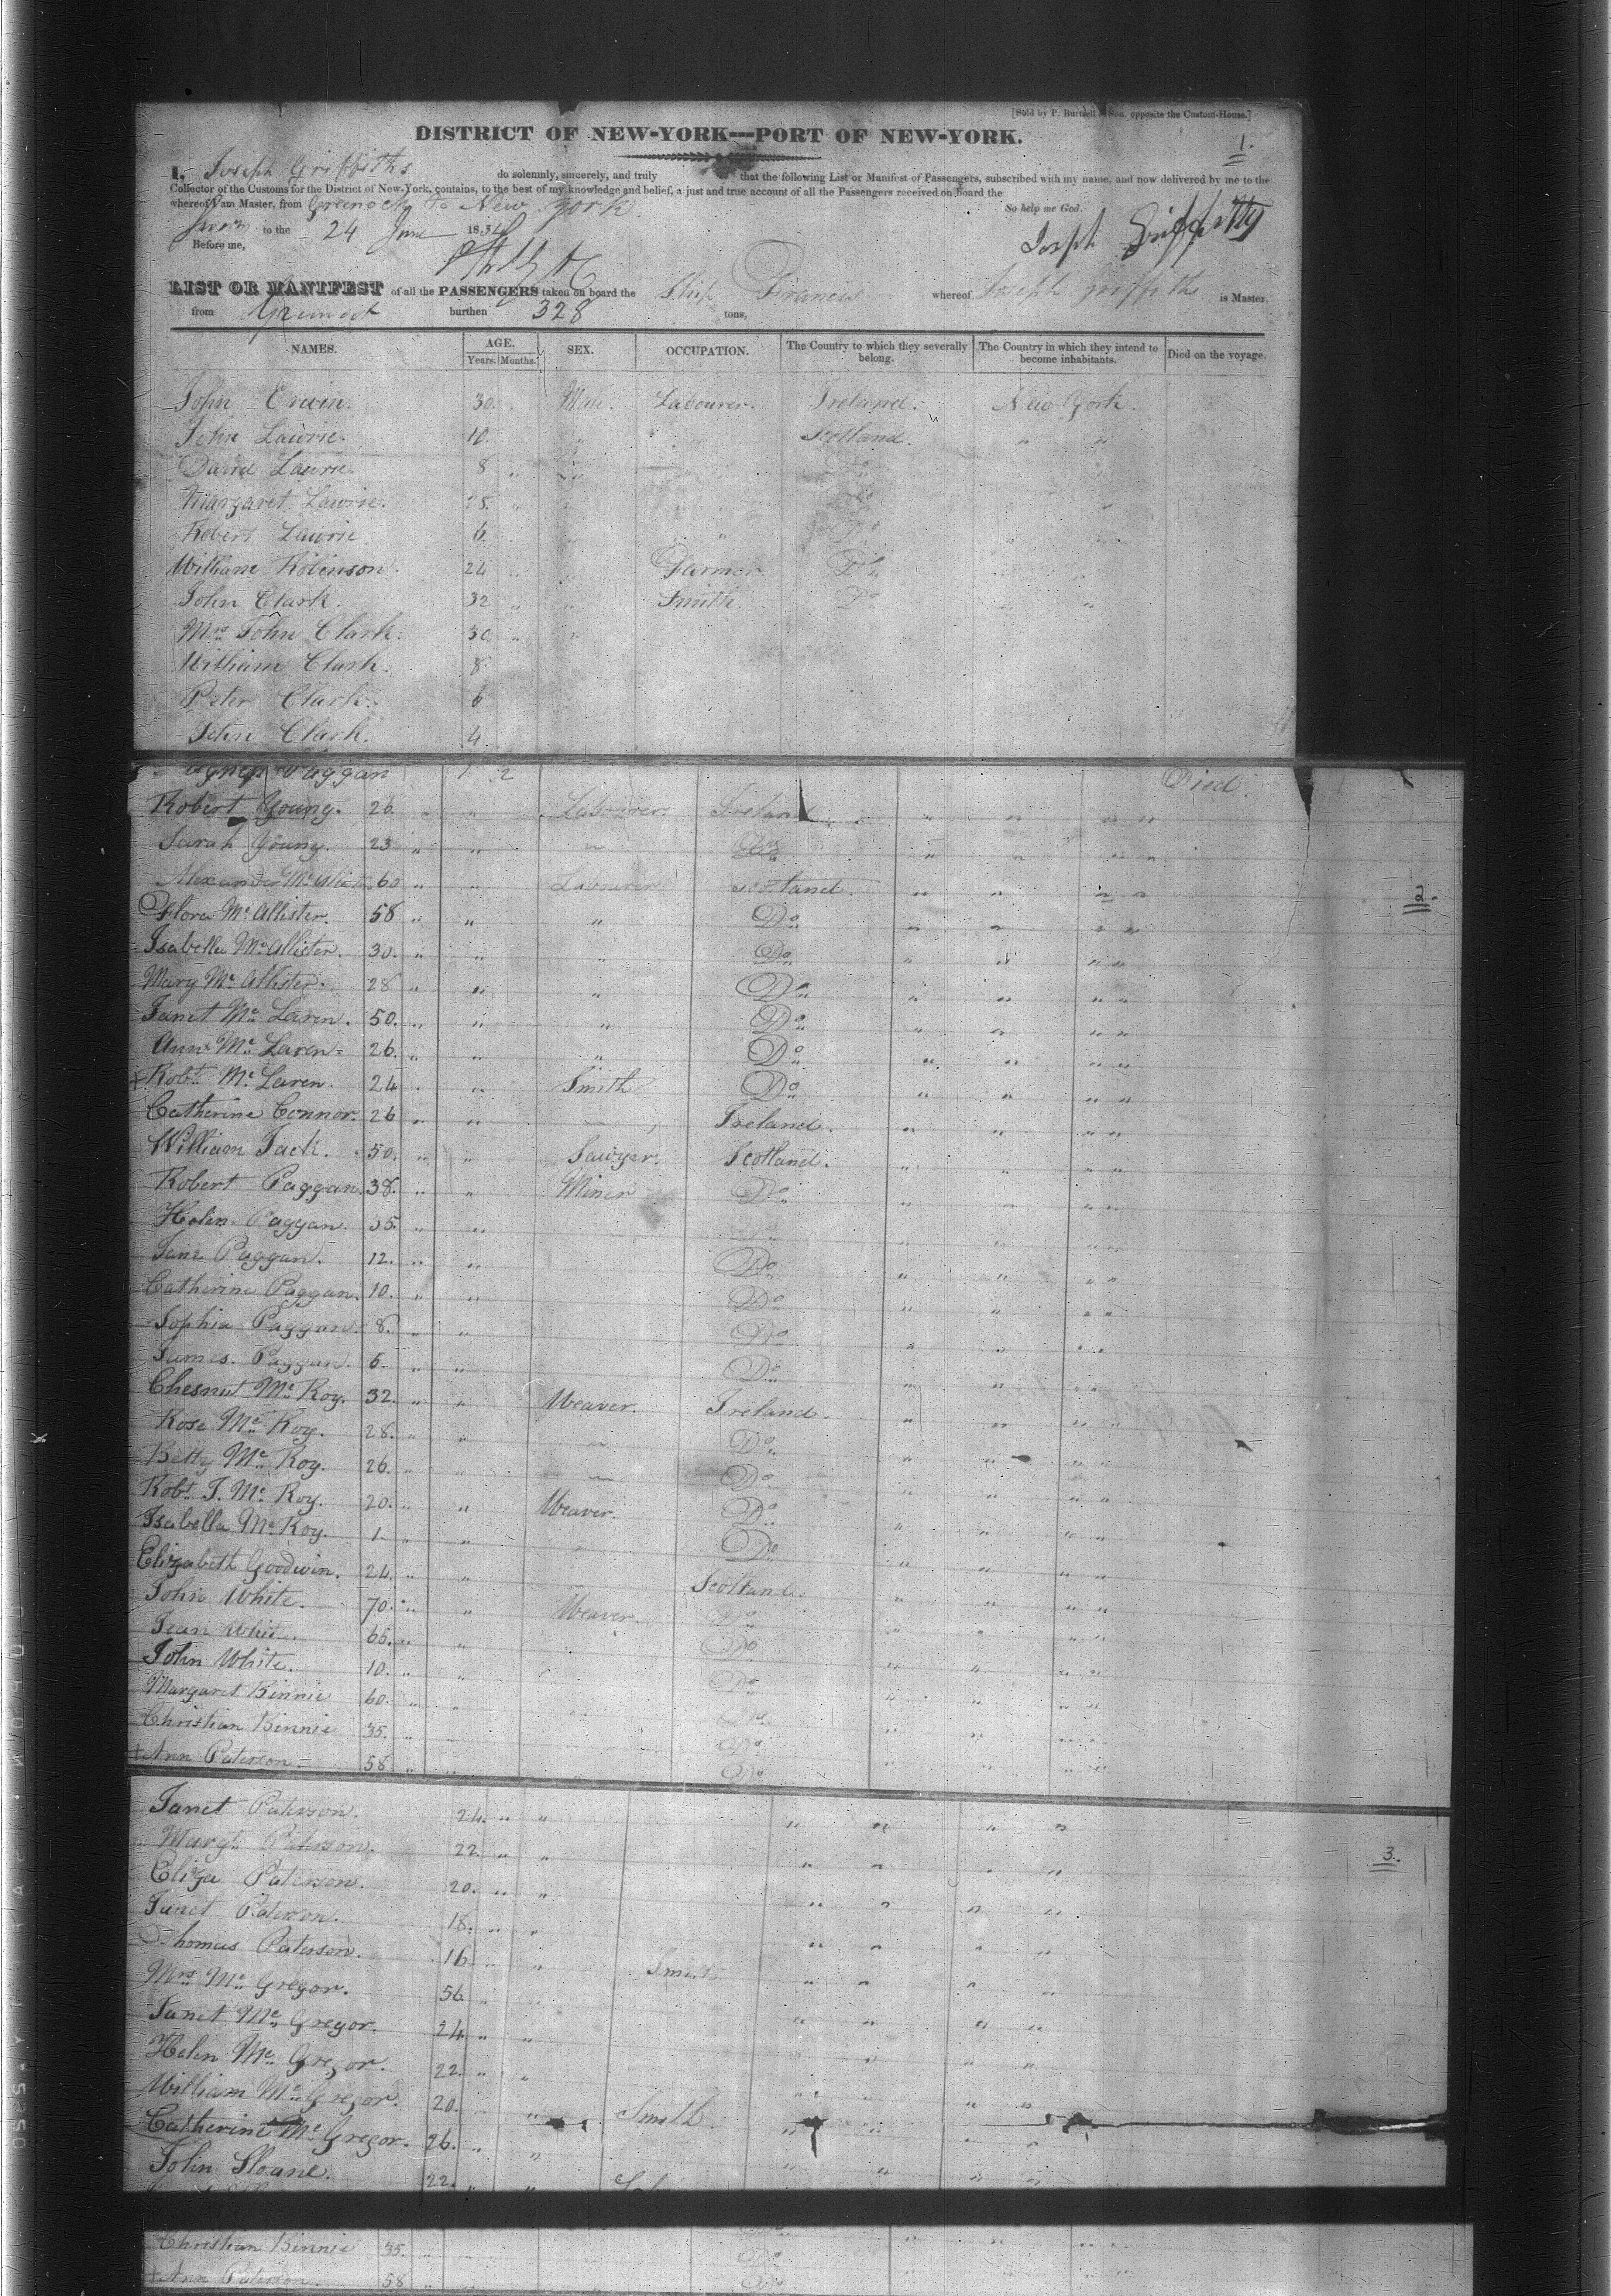 [Sold by P. Burtsell & Son, opposite the Custom-House.]
DISTRICT OF NEW-YORK—PORT OF NEW-YORK.
1.
I, Joseph Griffiths do solemnly, sincerely, and truly that the following List or Manifest of Passengers, subscribed with my name, and now delivered by me to the
Collector of the Customs for the District of New-York, contains, to the best of my knowledge and belief, a just and true account of all the Passengers received on board the
whereof I am Master, from Greenock to New York.
So help me God.
Sworn to the 24 June 1834
Joseph Griffiths
Before me,
LIST OR MANIFEST of all the PASSENGERS taken on board the Ship Francis whereof Joseph Griffiths is Master,
from Greenock burthen 328 tons,
NAMES. AGE. Years. Months. SEX. OCCUPATION. The Country to which they severally belong. The Country in which they intend to become inhabitants. Died on the voyage.
John Erwin. 30. Male. Labourer. Ireland. New York.
John Lawrie. 10. " Scotland. " "
David Lawrie. 8 " " Do
Margaret Lawrie. 25. " " Do "
Robert Lawrie 6. " " Do " "
William Robinson. 24 " Farmer. Do
John Clark. 32 " " Smith. Do " "
Mrs John Clark. 30. " "
William Clark. 8.
Peter Clark. 6
John Clark. 4.
Agness Paggan 1 2 Died.
Robert Young. 26. " " Labourer. Ireland " " " "
Sarah Young. 23 " " " Do " " " "
Alexander McAllister 60 " " Labourer Scotland. " " " "
2.
Flora Mc Allister. 58 " " " Do " " " "
Isabella Mc Allister. 30. " " " Do " " " "
Mary Mc Allister. 28 " " " Do " " " "
Janet Mc Laren. 50. " " " Do " " " "
Ann Mc Laren 26. " " " Do " " " "
+ Robt Mc Laren. 24 " " Smith Do " " " "
Catherine Connor. 26 " " " Ireland. " " " "
William Jack. 50. " " Sawyer. Scotland. " " " "
Robert Paggan. 38. " " Miner Do " " " "
Helen Paggan. 35. " " " " " "
Jane Paggan. 12. " " Do " " " "
Catherine Paggan. 10. " " Do " " " "
Sophia Paggan. 8. " " Do " " "
James. Paggan. 6. " " Do " " " "
Chesnut Mc Roy. 32. " " Weaver. Ireland. " " " "
Rose Mc Roy. 28. " " " Do " " " "
Betty Mc Roy. 26. " " " Do " " " "
Robt J. Mc Roy. 20. " " Weaver. Do " " " "
Isabella Mc Roy. 1. " " " Do " " " "
Elizabeth Goodwin. 24. " " Scotland. " " " "
John White. 70. " " Weaver. Do " " " "
Jean White. 65. " " Do " " " "
John White. 10. " " Do " " " "
Margaret Binnie 60. " " Do " " " "
Christian Binnie 35. " Do " " " "
+ Ann Paterson 58 " " Do " " " "
Janet Paterson. 24. " " " " " "
Margt Paterson. 22 " " " " " "
3.
Eliza Paterson. 20. " " " " " "
Janet Paterson. 18. " " " " " "
Thomas Paterson. 16 " " Smith " " "
Mrs Mc Gregor. 56 " " " " " "
Janet Mc Gregor. 24 " " " " " "
Helen Mc Gregor. 22. " " " " " "
William Mc Gregor. 20. " Smith " " " "
Catherine Mc Gregor. 26. " " " " " "
John Sloane. 22. " " " "
Christian Binnie 35. " Do " " " "
+ Ann Paterson. 58 " Do " " " "